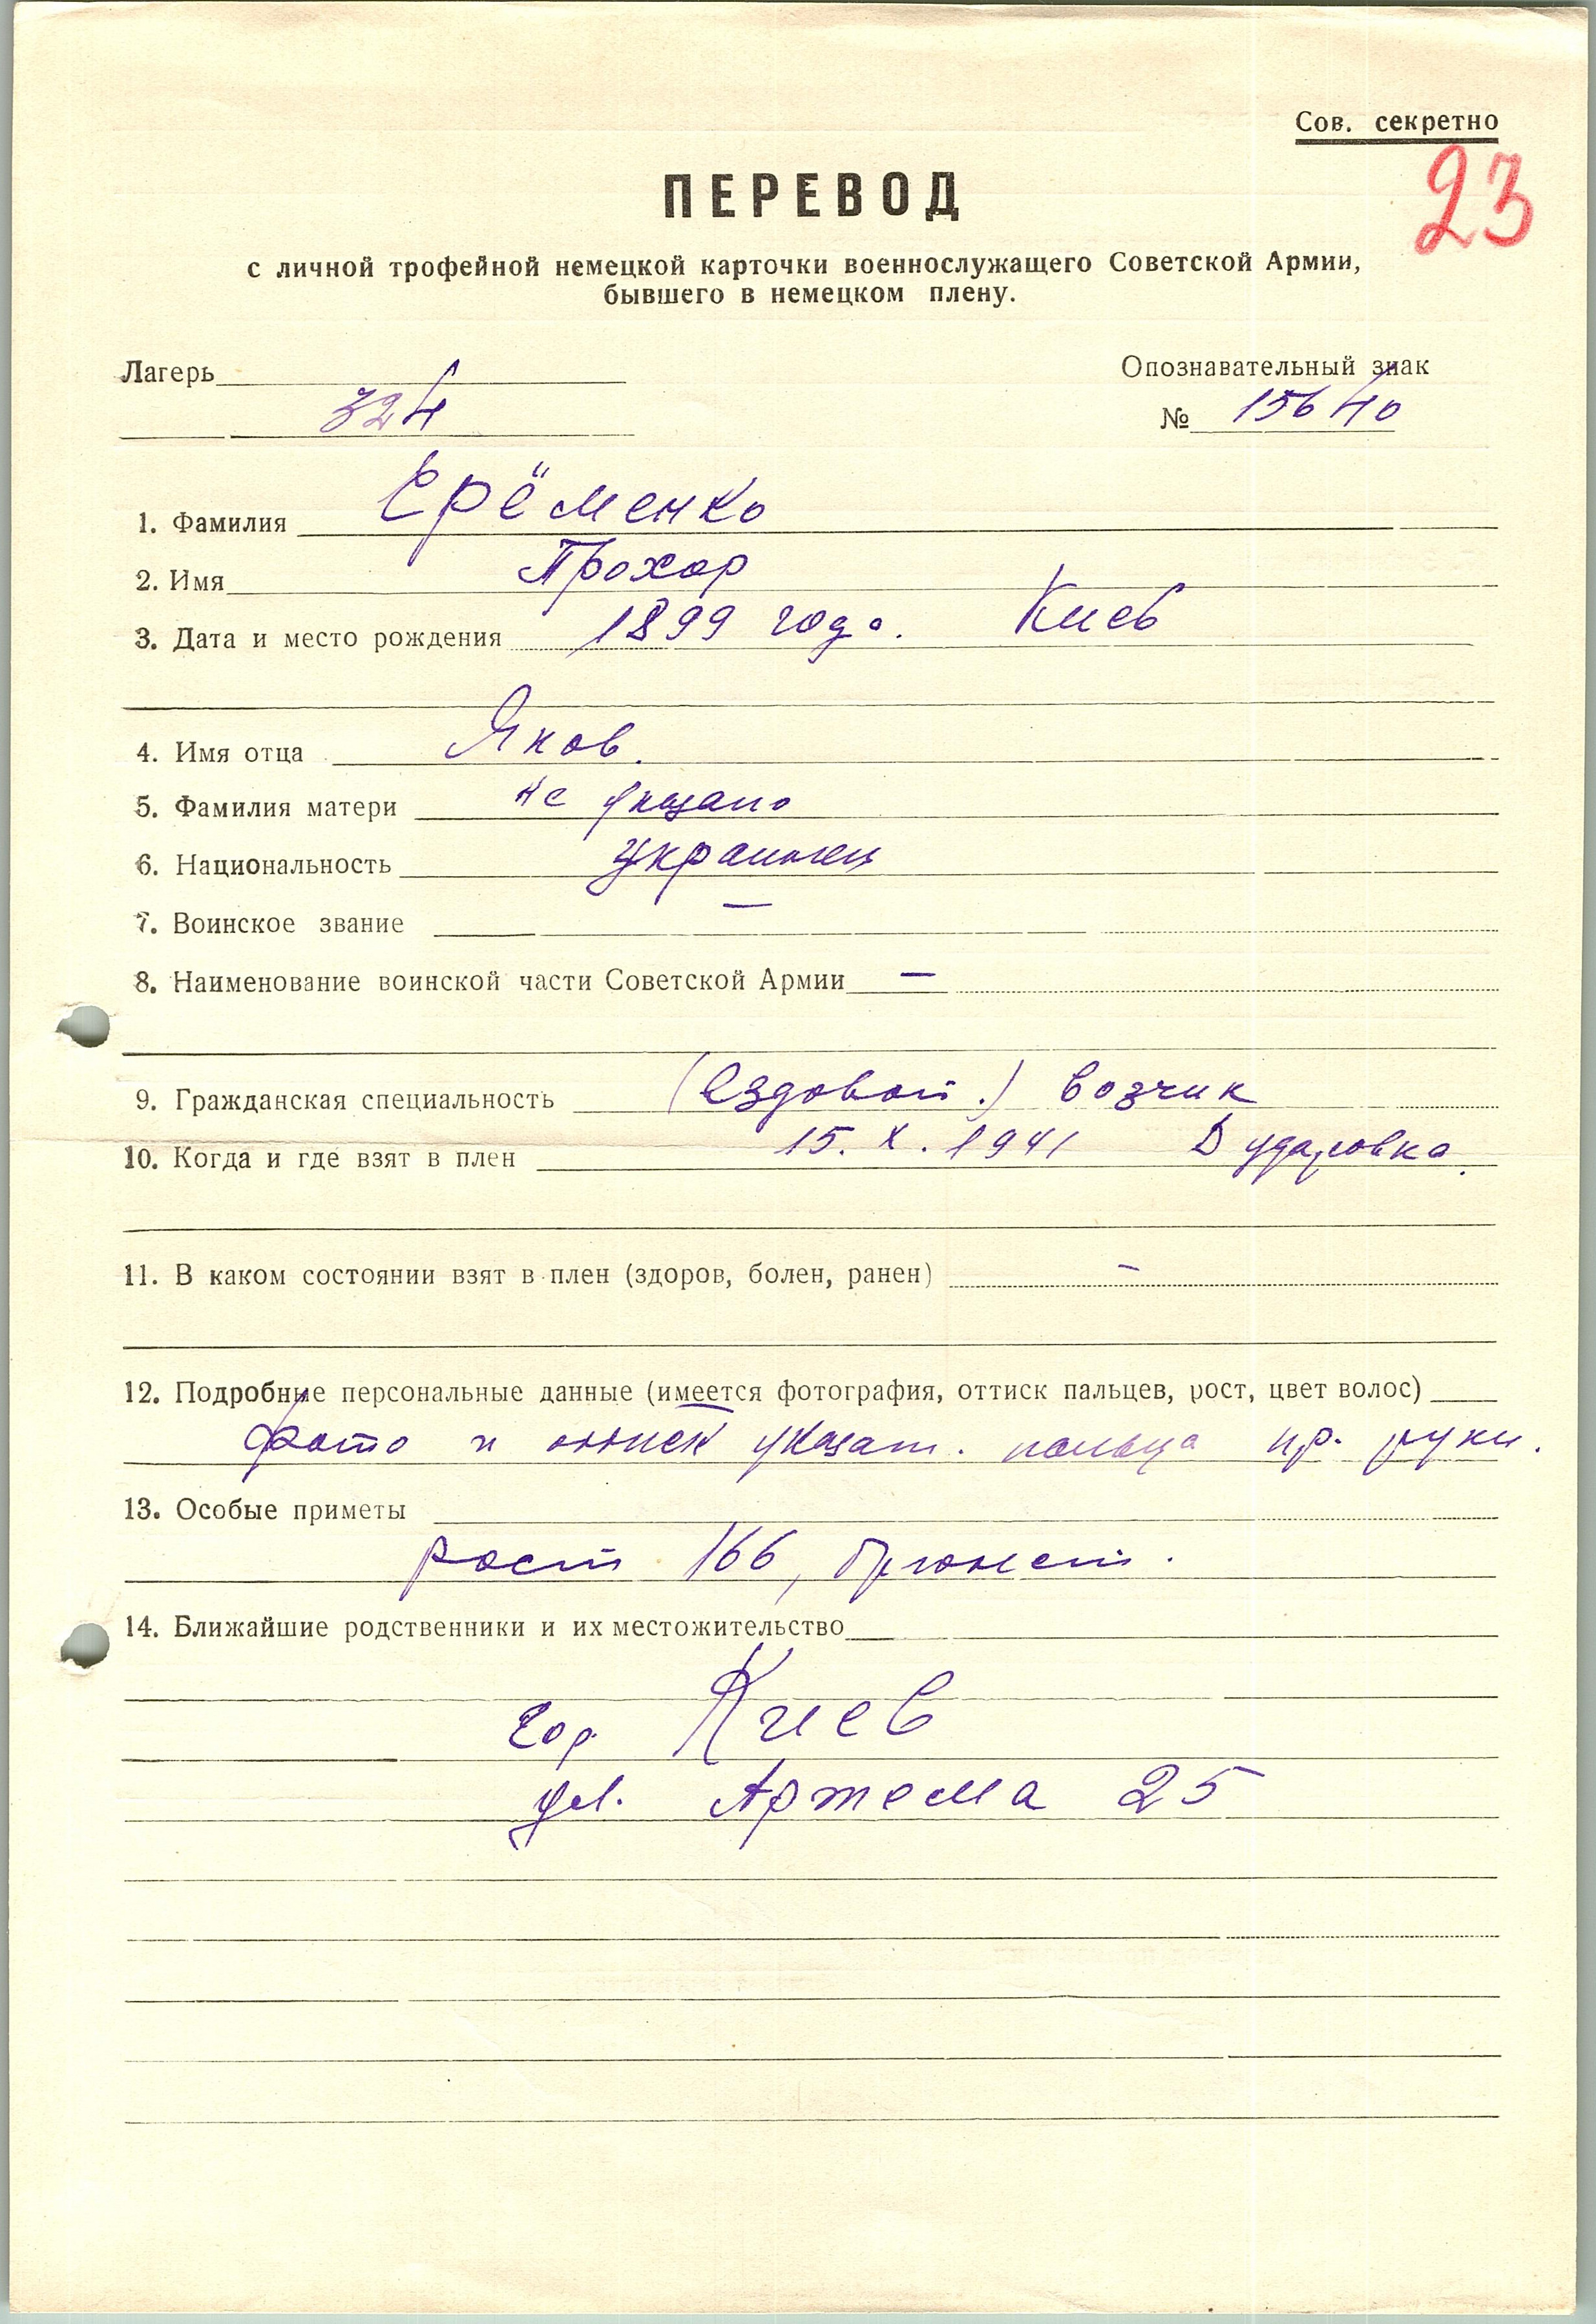 Сов. секретно
23
ПЕРЕВОД
с личной трофейной немецкой карточки военнослужащего Советской Армии,
бывшего в немецком плену.
Лагерь Опознавательный знак
324 № 15640
1. Фамилия Ерёменко
2. Имя Прохор
3. Дата и место рождения 1899 года. Киев
4. Имя отца Яков.
5. Фамилия матери не указано
6. Национальность украинец
7. Воинское звание —
8. Наименование воинской части Советской Армии —
9. Гражданская специальность (Ездовой.) возчик
10. Когда и где взят в плен 15. X. 1941 Дударовка.
11. В каком состоянии взят в плен (здоров, болен, ранен) -
12. Подробные персональные данные (имеется фотография, оттиск пальцев, рост, цвет волос)
Фото и оттиск указат. пальца пр. руки.
13. Особые приметы
рост 166, брюнет.
14. Ближайшие родственники и их местожительство
гор Киев
ул. Артема 25